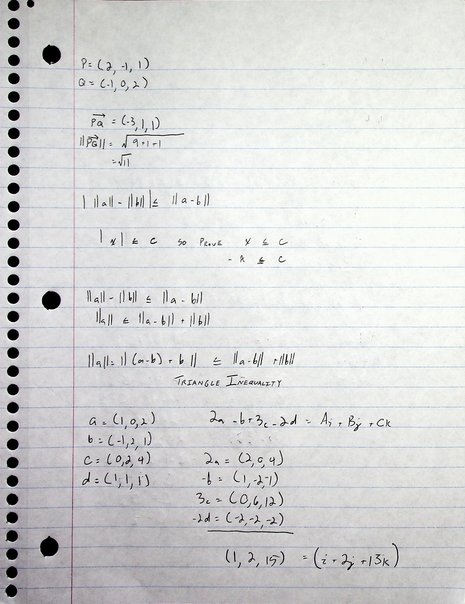 P = (2, -1, 1)
Q = (-1, 0, 2)
PQ = (-3, 1, 1)
||PQ|| = √9+1+1
= √11
| ||a|| - ||b|| | ≤ ||a - b||
|x| ≤ c so PROVE x ≤ c
-x ≤ c
||a|| - ||b|| ≤ ||a - b||
||a|| ≤ ||a - b|| + ||b||
||a|| = || (a-b) + b || ≤ ||a-b|| + ||b||
TRIANGLE INEQUALITY
a = (1, 0, 2) 2a - b + 3c - 2d = Ai + Bj + Ck
b = (-1, 2, 1)
c = (0, 2, 4) 2a = (2, 0, 4)
d = (1, 1, 1) -b = (1, -2, -1)
3c = (0, 6, 12)
-2d = (-2, -2, -2)
(1, 2, 15) = (i + 2j + 13k)